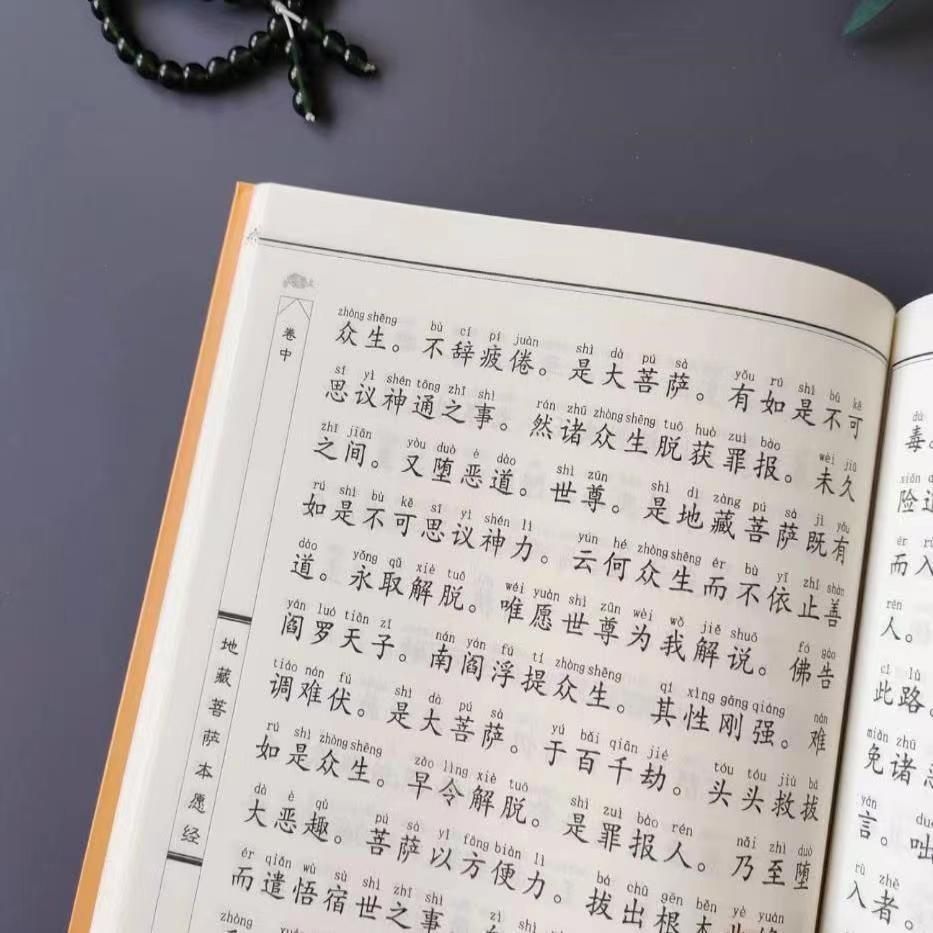 卷中
地藏菩萨本愿经
zhòng shēng bù cí pí juàn shì dà pú sà yǒu rú shì bù kě
众生。不辞疲倦。是大菩萨。有如是不可
sī yì shén tōng zhī shì rán zhū zhòng shēng tuō huò zuì bào wèi jiǔ
思议神通之事。然诸众生脱获罪报。未久
zhī jiān yòu duò è dào shì zūn shì dì zàng pú sà jì yǒu
之间。又堕恶道。世尊。是地藏菩萨既有
rú shì bù kě sī yì shén lì yún hé zhòng shēng ér bù yī zhǐ shàn
如是不可思议神力。云何众生而不依止善
dào yǒng qǔ jiě tuō wéi yuàn shì zūn wèi wǒ jiě shuō fó gào
道。永取解脱。唯愿世尊为我解说。佛告
yán luó tiān zǐ nán yán fú tí zhòng shēng qí xìng gāng qiáng nán
阎罗天子。南阎浮提众生。其性刚强。难
tiáo nán fú shì dà pú sà yú bǎi qiān jié tóu tóu jiù bá
调难伏。是大菩萨。于百千劫。头头救拔
rú shì zhòng shēng zǎo lìng xiè tuō shì zuì bào rén nǎi zhì duò
如是众生。早令解脱。是罪报人。乃至堕
dà è qù pú sà yǐ fāng biàn lì bá chū gēn běn yè yuán
大恶趣。菩萨以方便力。拔出根本业缘
ér qiǎn wù sù shì zhī shì
而遣悟宿世之事
zhòng
毒。
险道
而入
rén
人。
cǐ lù
此路。
miǎn zhū
免诸
yán
言。咄
rù zhě
入者。